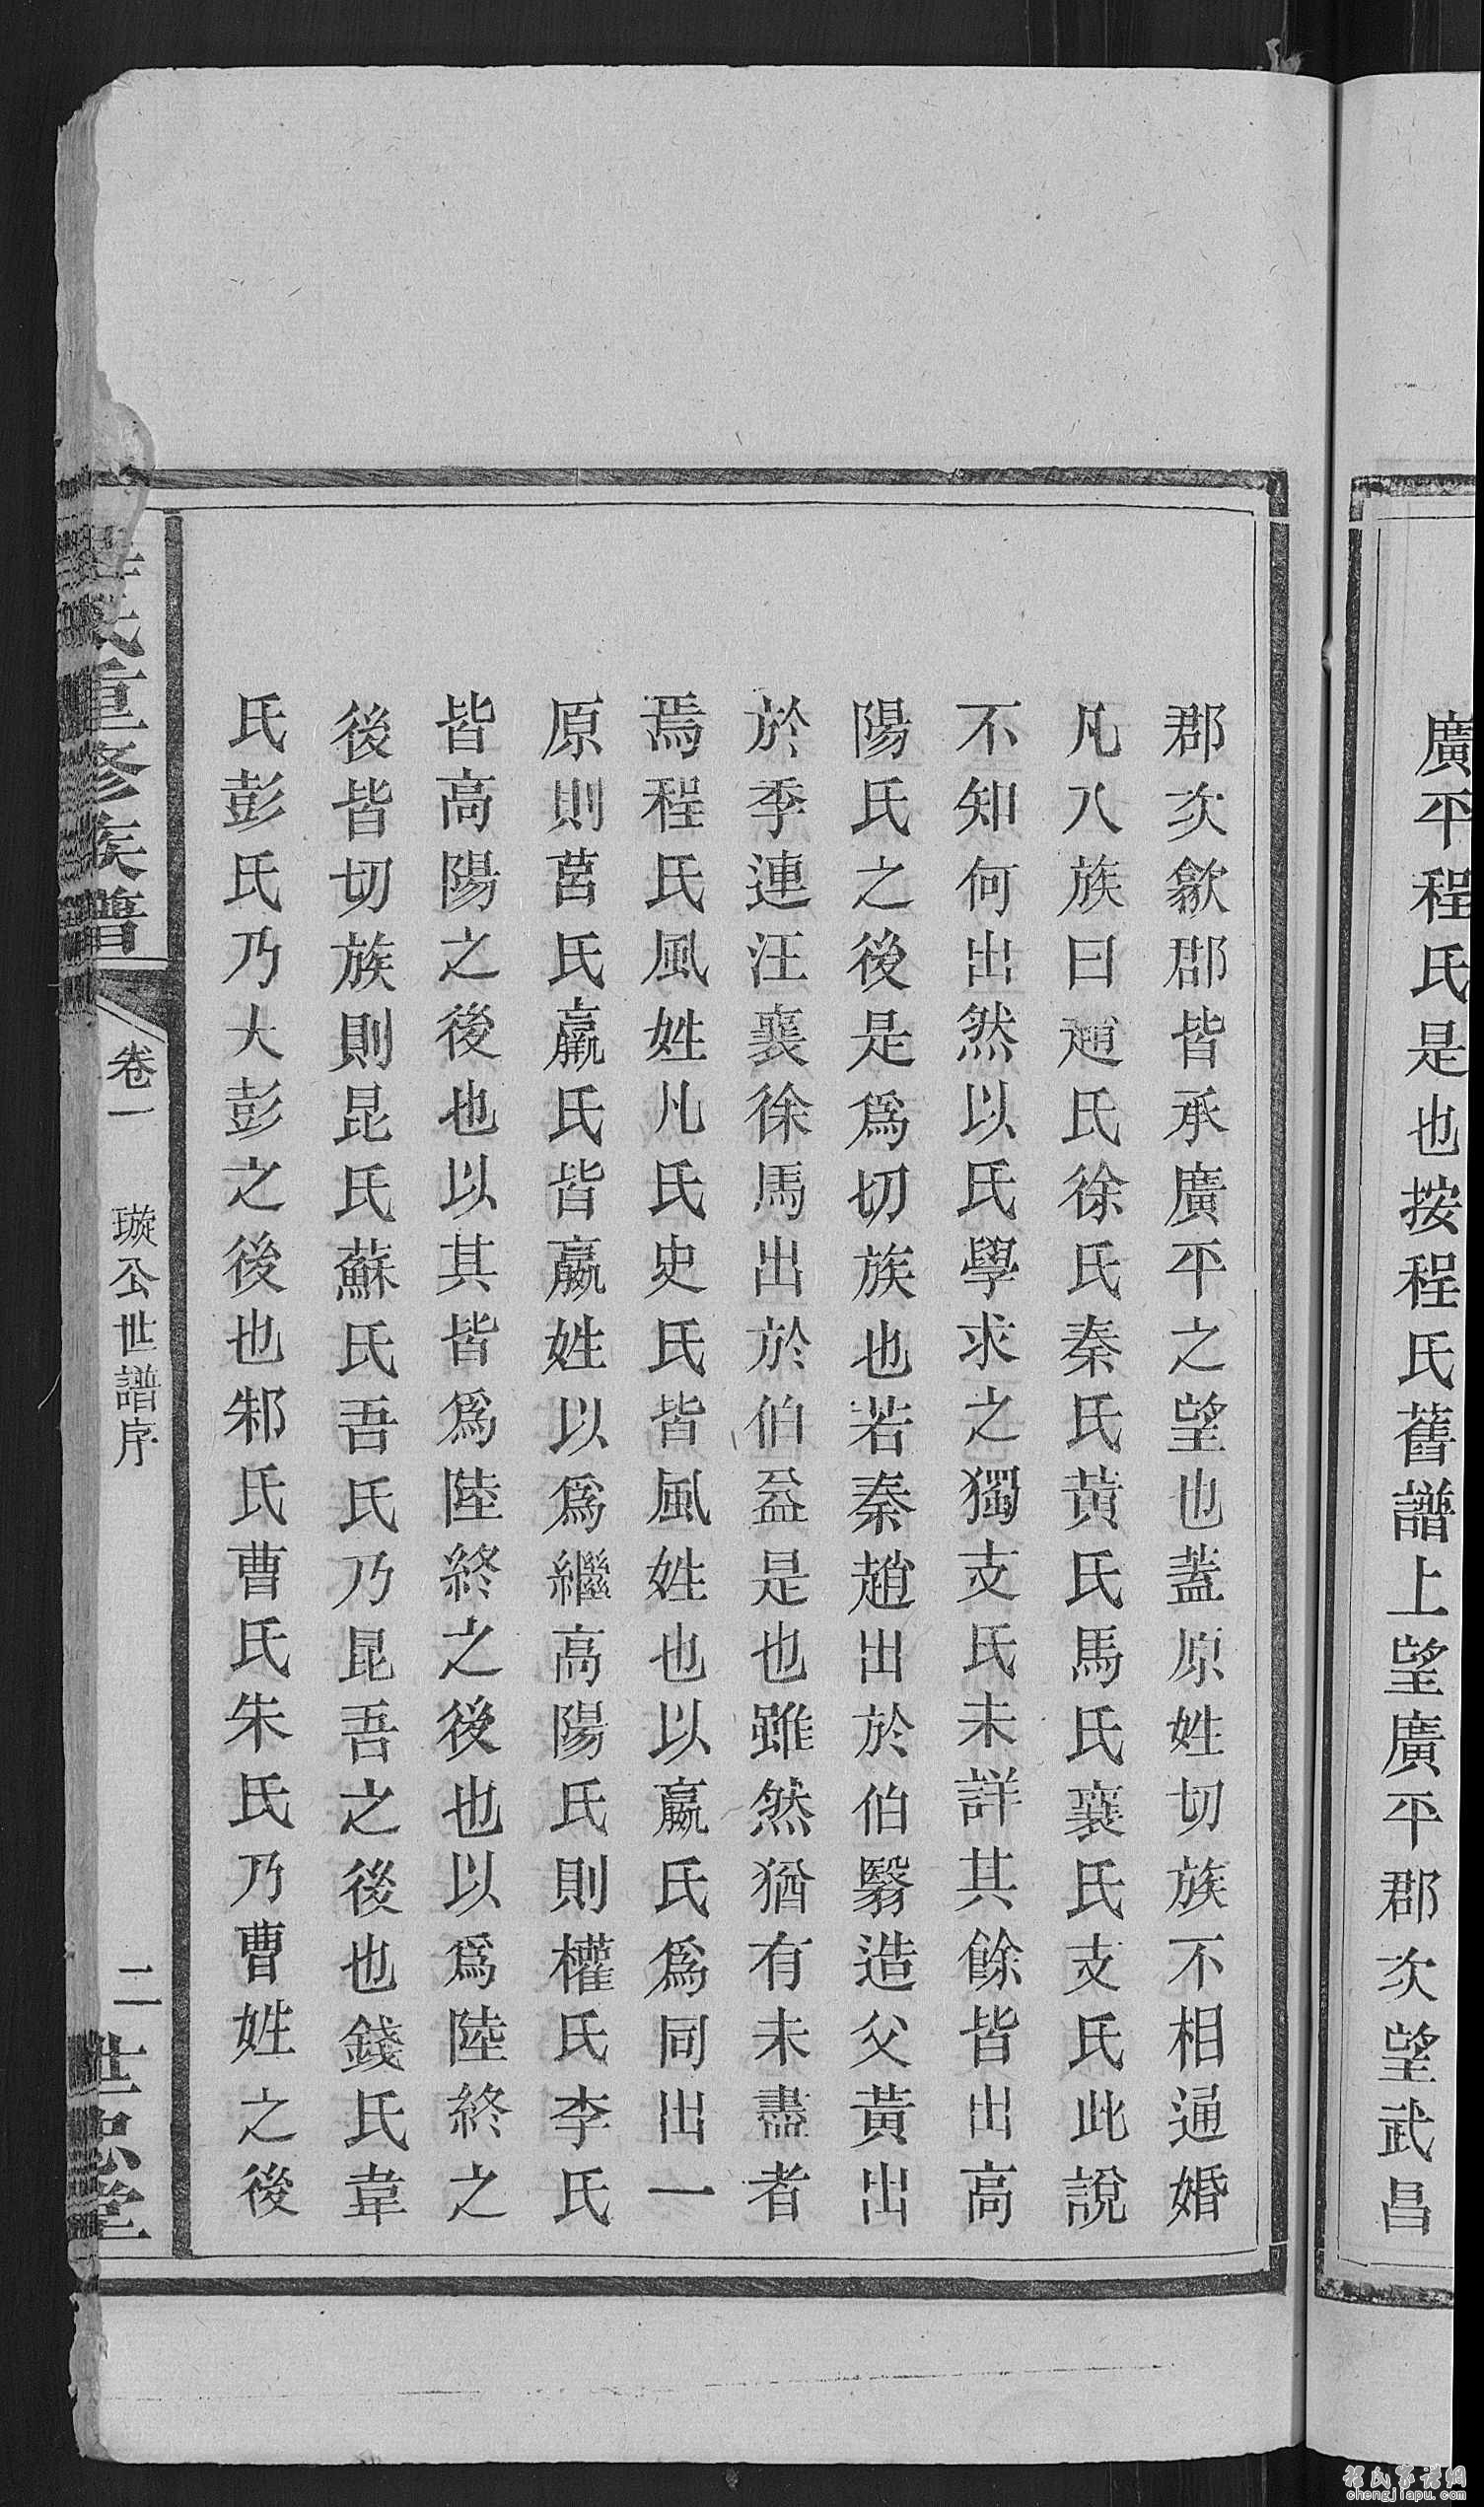 廣平程氏是也按程氏舊譜上望廣平郡次望武昌
郡次歙郡皆承廣平之望也蓋原姓切族不相通婚
凡八族曰趙氏徐氏秦氏黃氏馬氏襄氏支氏此說
不知何出然以氏學求之獨支氏未詳其餘皆出高
陽氏之後是爲切族也若秦趙出於伯翳造父黃出
於季連汪襄徐馬出於伯益是也雖然猶有未盡者
焉程氏風姓凡氏史氏皆風姓也以嬴氏爲同出一
原則莒氏嬴氏皆嬴姓以爲繼高陽氏則權氏李氏
皆高陽之後也以其皆爲陸終之後也以爲陸終之
後皆切族則昆氏蘇氏吾氏乃昆吾之後也錢氏韋
氏彭氏乃大彭之後也邾氏曹氏朱氏乃曹姓之後
氏重修族譜
卷一
璇公世譜序
二
世忠堂
程氏家譜網
chengjiapu.com